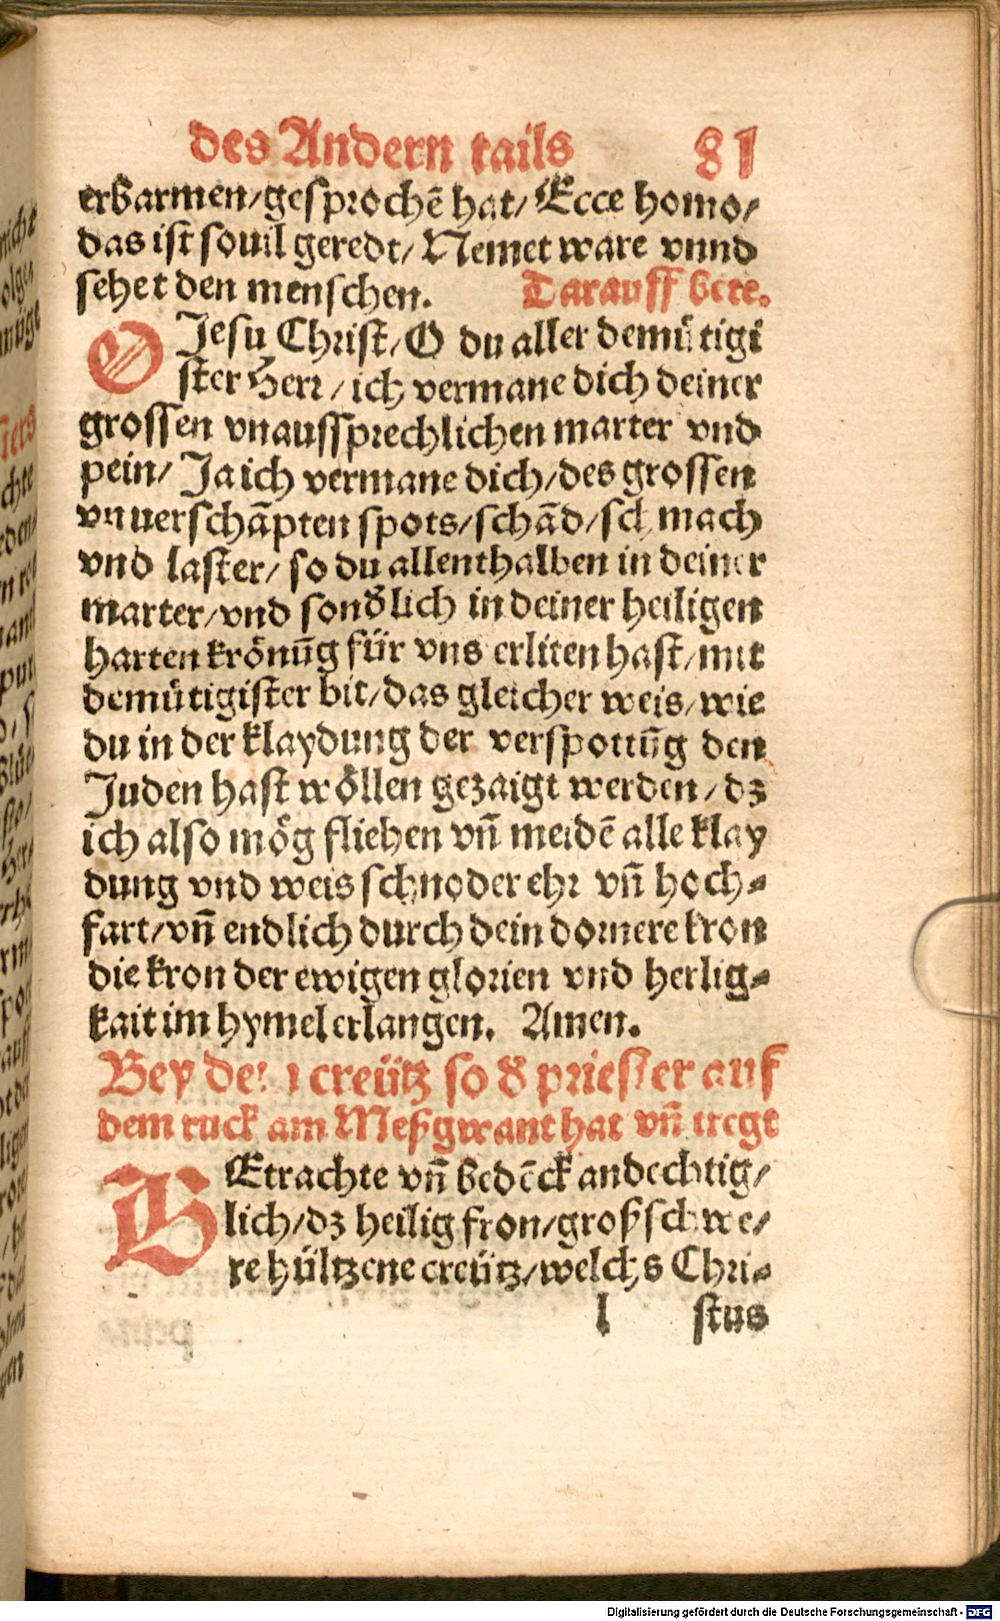 des Andern tails 81
erbarmen/gesprochē hat/Ecce homo/
das ist souil geredt/Nemet ware vnnd
sehet den menschen. Darauff bete.
O Jesu Christ/O du aller demütigi
ster Herr/ich vermane dich deiner
grossen vnaussprechlichen marter vnd
pein/Ja ich vermane dich/des grossen
vnuerschāpten spots/schād/schmach
vnd laster/so du allenthalben in deiner
marter/vnd sonđlich in deiner heiligen
harten krönūg für vns erliten hast/mit
demütigister bit/das gleicher weis/wie
du in der klaydung der verspottūg den
Juden hast wöllen gezaigt werden/dz
ich also mög fliehen vn̄ meidē alle klay
dung vnd weis schnoder ehr vn̄ hoch-
fart/vn̄ endlich durch dein dornere kron
die kron der ewigen glorien vnd herlig-
kait im hymel erlangen. Amen.
Bey dem creütz so đ priester auf
dem ruck am Meßgwant hat vn̄ tregt
BEtrachte vn̄ bedēck andechtig/
lich/dz heilig fron/groß schwe/
re hültzene creütz/welchs Chri-
l stus
Digitalisierung gefördert durch die Deutsche Forschungsgemeinschaft - DFG